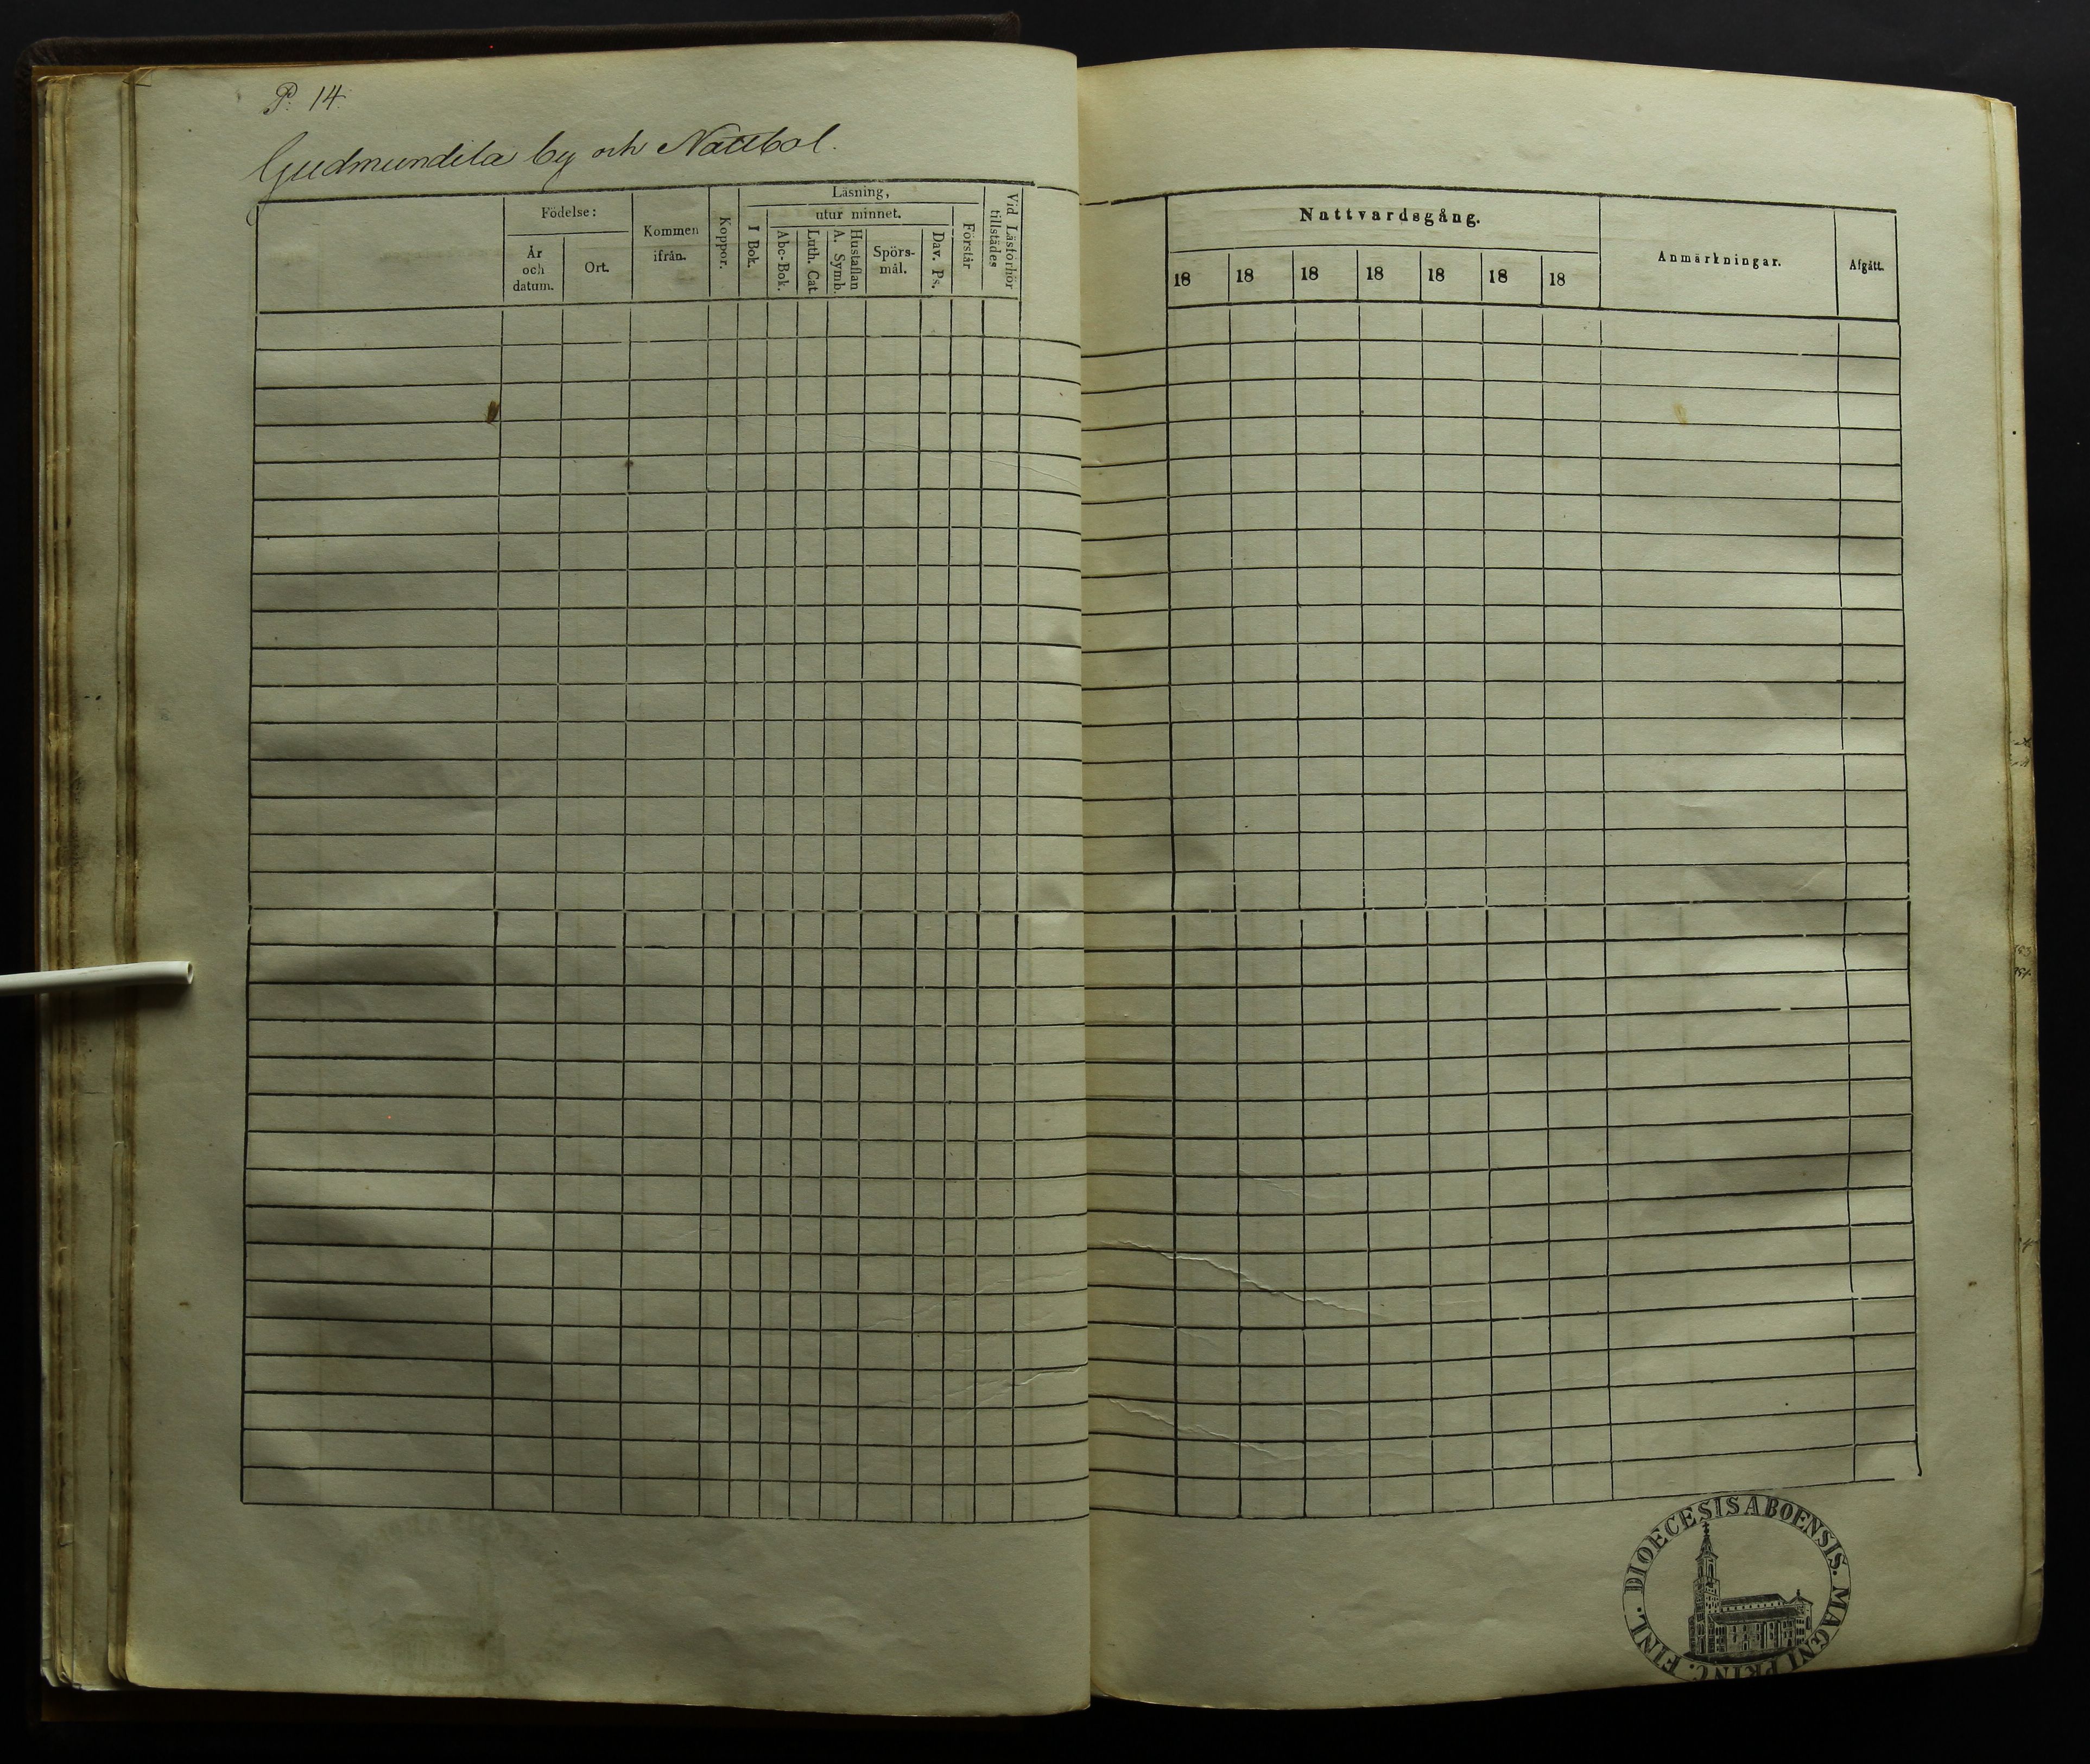 P. 14.
Gudmundila by och Nattbol.
Födelse:
År
och
datum.
Ort.
Kommen
ifrån.
Koppor.
Läsning,
I Bok.
utur minnet.
Abc-Bok.
Luth. Cat.
Hustaflan
A. Symb.
Spörs-
mål.
Dav. Ps.
Förstår
Vid Läsförhör
tillstädes
Nattvardsgång.
18 18 18 18 18 18 18
Anmärkningar.
Afgått.
DIOECESIS ABOENSIS. MAGNI PRINC. FINL.